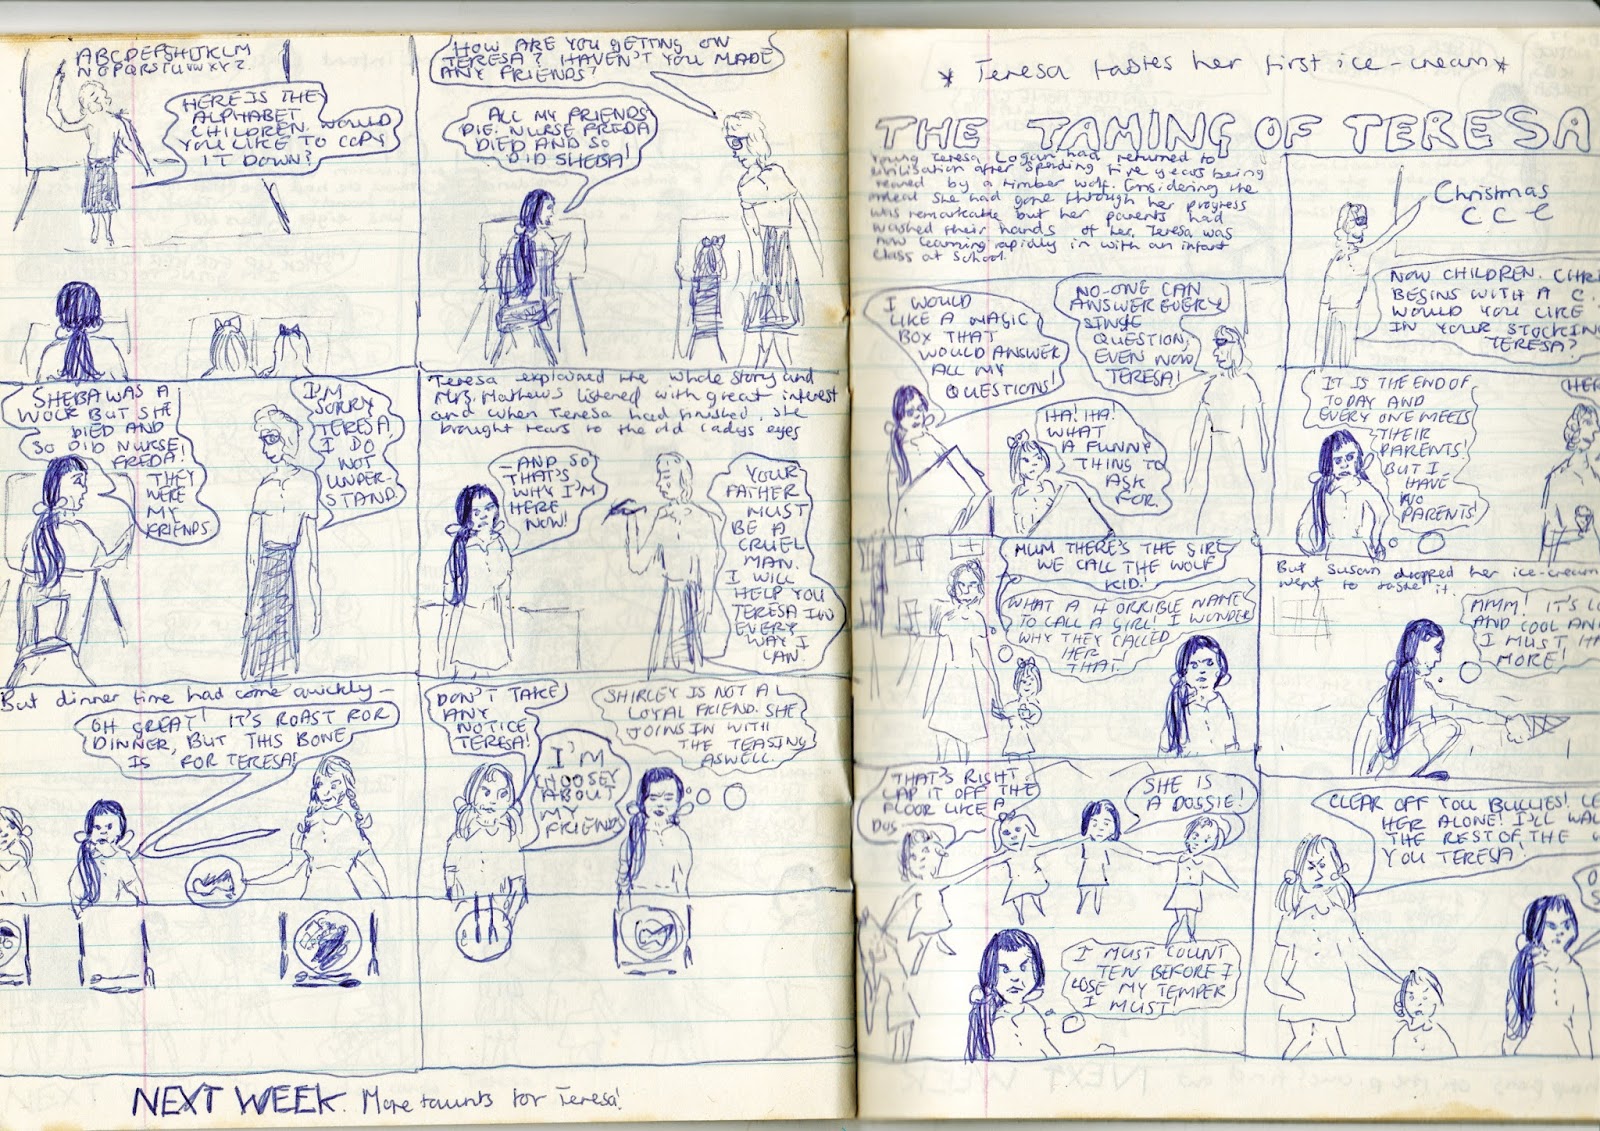 ABCDEFGHIJKLM
NOPQRSTUVWXYZ.
HERE IS THE
ALPHABET
CHILDREN. WOULD
YOU LIKE TO COPY
IT DOWN?
HOW ARE YOU GETTING ON
TERESA? HAVEN'T YOU MADE
ANY FRIENDS?
ALL MY FRIENDS
DIE. NURSE FREDA
DIED AND SO
DID SHEBA!
SHEBA WAS A
WOLF BUT SHE
DIED AND
SO DID NURSE
FREDA!
THEY
WERE
MY
FRIENDS.
I'M
SORRY
TERESA,
I DO
NOT
UNDER-
STAND.
Teresa explained the whole story and
Mrs. Mathews listened with great interest
and when Teresa had finished, she
brought tears to the old ladys eyes
—AND SO
THAT'S
WHY I'M
HERE
NOW!
YOUR
FATHER
MUST
BE A
CRUEL
MAN.
I WILL
HELP YOU
TERESA IN
EVERY
WAY I
CAN.
But dinner time had come quickly—
OH GREAT! IT'S ROAST FOR
DINNER, BUT THIS BONE
IS FOR TERESA!
DON'T TAKE
ANY
NOTICE
TERESA!
I'M
CHOOSEY
ABOUT
MY
FRIENDS
SHIRLEY IS NOT A
LOYAL FRIEND. SHE
JOINS IN WITH
THE TEASING
ASWELL.
NEXT WEEK. More taunts for Teresa!
* Teresa tastes her first ice-cream *
THE TAMING OF TERESA
Young Teresa Logan had returned to
civilisation after spending five years being
reared by a timber wolf. Considering the
ordeal she had gone through her progress
was remarkable but her parents had
washed their hands of her. Teresa was
now learning rapidly in with an infant
class at school.
Christmas
C C C
NOW CHILDREN. CHR
BEGINS WITH A C.
WOULD YOU LIKE
IN YOUR STOCKIN
TERESA?
I WOULD
LIKE A MAGIC
BOX THAT
WOULD ANSWER
ALL MY
QUESTIONS!
NO-ONE CAN
ANSWER EVERY
SINGLE
QUESTION,
EVEN NOW
TERESA!
HA! HA!
WHAT
A FUNNY
THING TO
ASK
FOR.
IT IS THE END OF
TODAY AND
EVERY ONE MEETS
THEIR
PARENTS!
BUT I
HAVE
NO
PARENTS!
HER
MUM THERE'S THE GIRL
WE CALL THE WOLF
KID!
WHAT A HORRIBLE NAME
TO CALL A GIRL! I WONDER
WHY THEY CALLED
HER
THAT.
But Susan dropped her ice-cream
went to taste it.
MMM! IT'S
AND COOL AN
I MUST HA
MORE!
THAT'S RIGHT
LAP IT OFF THE
FLOOR LIKE A
DOG
SHE IS
A DOGGIE!
I MUST COUNT
TEN BEFORE I
LOSE MY TEMPER
I MUST!
CLEAR OFF YOU BULLIES! LE
HER ALONE! I'LL WAL
THE REST OF THE
YOU TERESA.